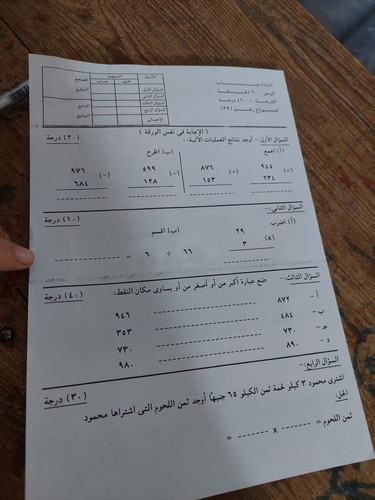 المادة: حساب
الزمن : ٦٠ دقيقة
الدرجة : ١٠٠ درجة
نموذج رقم (٣٢)
الأسئلة النتيجة المصحح
السؤال الأول التوقيع
السؤال الثانى
السؤال الثالث المراجع
السؤال الرابع التوقيع
الإجمالى
( الإجابة فى نفس الورقة )
السؤال الأول:- أوجد نتائج العمليات الآتية: (٢٠) درجة
(أ) اجمع (ب) اطرح
٩٤٥ ٨٧٦ ٥٩٩ ٩٧٦
(+) (+) (-) (-)
٢٣٤ ١٥٣ ١٢٨ ٦٨٤
السؤال الثانى:- (١٠) درجة
(أ) اضرب (ب) اقسم
٢٩
(x) ٦٦ ÷ ٦ =
٣
السؤال الثالث:- ضع عبارة أكبر من أو أصغر من أو يساوى مكان النقط: (٤٠) درجة
أ - ٨٧٢ ٩٤٦
ب - ٤٨٤ ٣٥٣
جـ - ٧٣٠ ٧٣٠
د - ٨٩٠ ٩٨٠
السؤال الرابع:- (٣٠) درجة
اشترى محمود ٣ كيلو لحمة ثمن الكيلو ٦٥ جنيهًا أوجد ثمن اللحوم التى اشتراها محمود
الحل:
ثمن اللحوم = ------- x ------- =